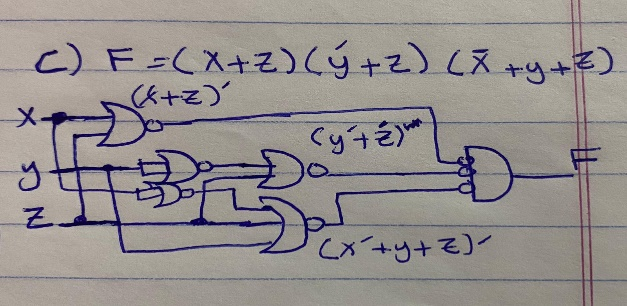 C) F = (X+Z)(ý+z) (x̄+y+z)
(x+z)'
X
(y'+ź)
F
y
Z
(x'+y+z)'